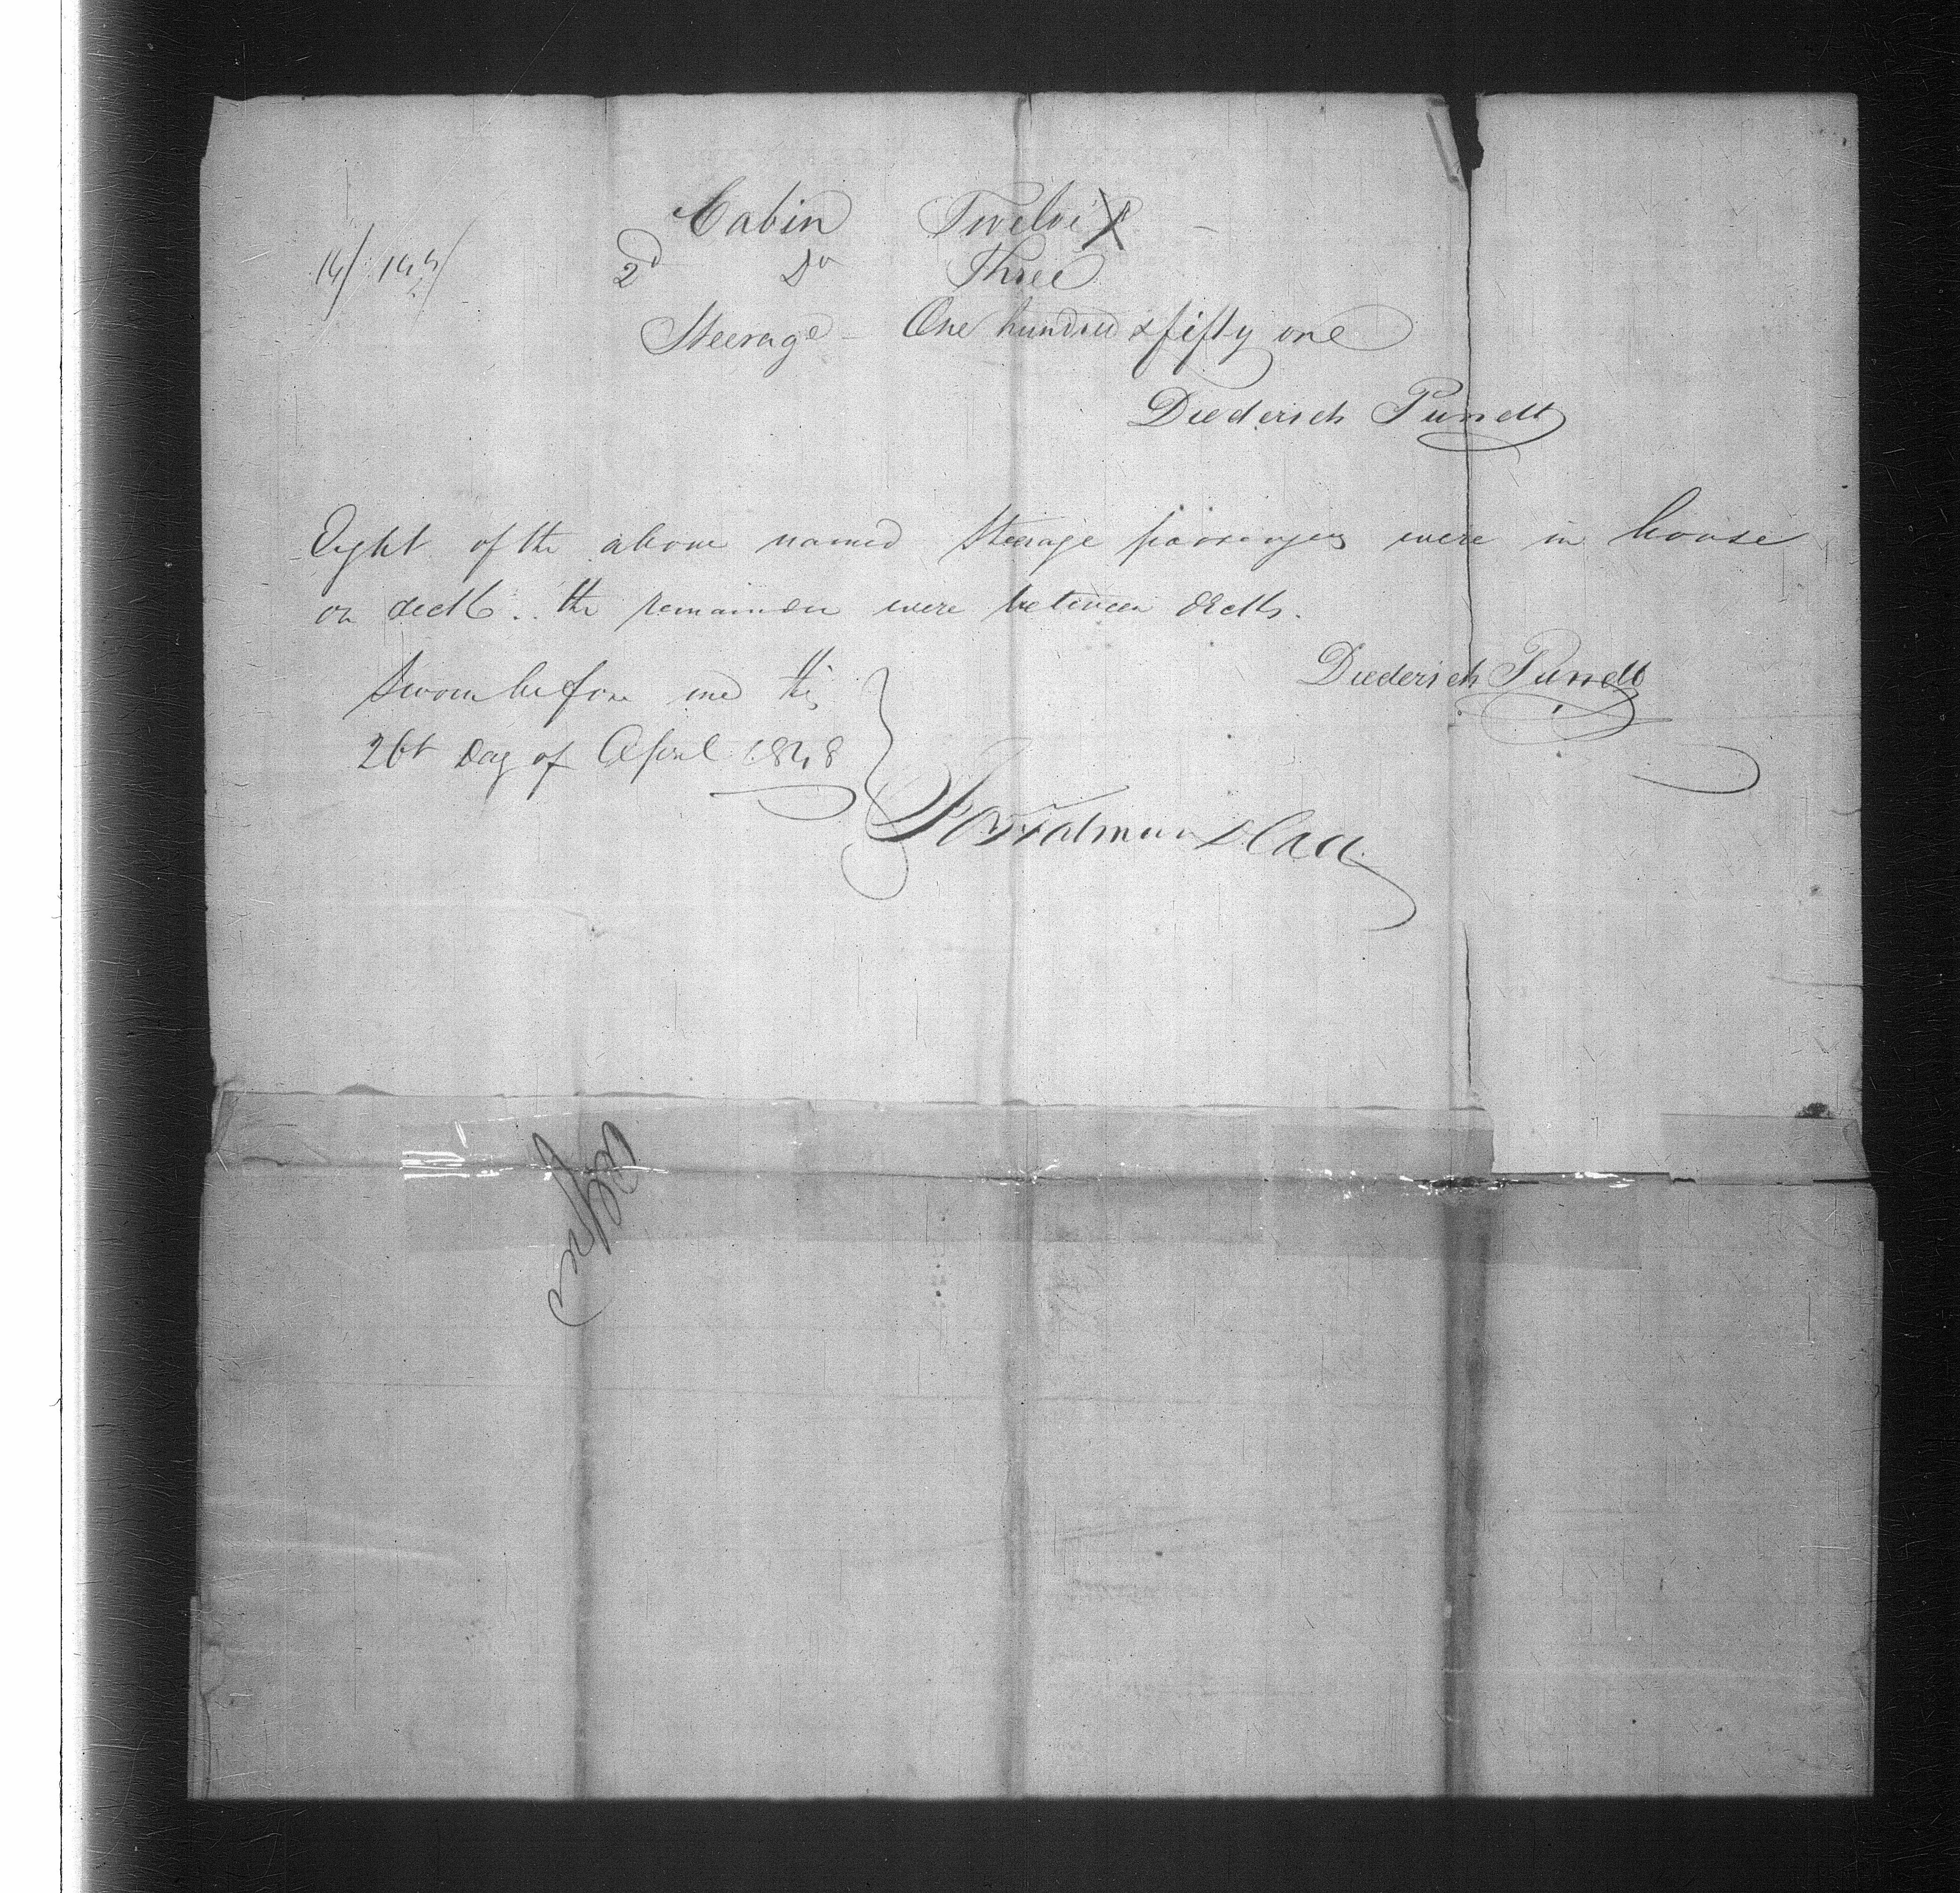 Cabin Twelve X
14/ 144/ 2d Do Three
Steerage - One hundred & fifty one
Diederich
Eight of the above named Steerage passengers were in house
on deck.. the remainder were between decks.
Diederich
Sworn before me this
26t Day of April 1848